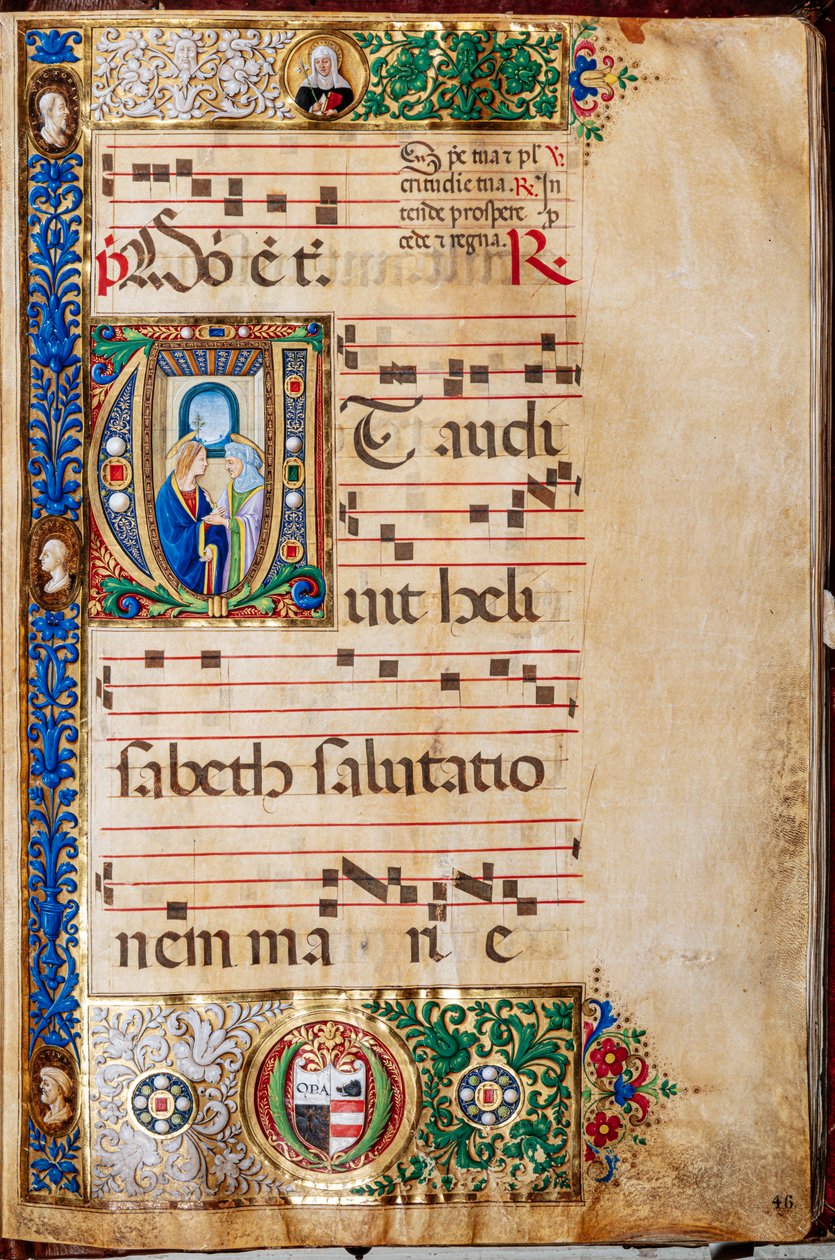 Spẽ tua ⁊ pl V.
critudĩe tua. R. In
tende prospere p
cede ⁊ regna.
et. R.
VT audi
uit heli
sabeth salutatio
nem ma ri e
OPA
46